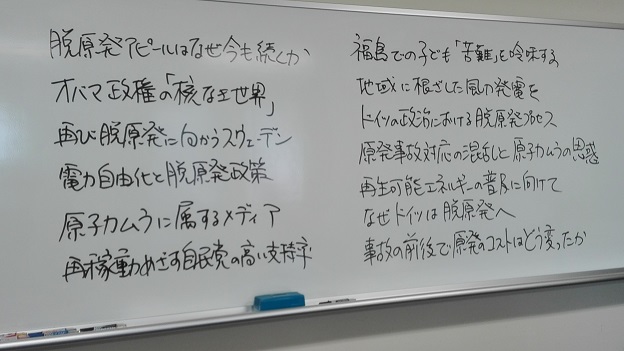 脱原発アピールはなぜ今も続くか
オバマ政権の「核なき世界」
再び脱原発に向かうスウェーデン
電力自由化と脱原発政策
原子力ムラに属するメディア
再稼動めざす自民党の高い支持率
福島での子ども「苦難」を吟味する
地域に根ざした風力発電を
ドイツの政治における脱原発プロセス
原発事故対応の混乱と原子力ムラの思惑
再生可能エネルギーの普及に向けて
なぜドイツは脱原発へ
事故の前後で原発のコストはどう変ったか